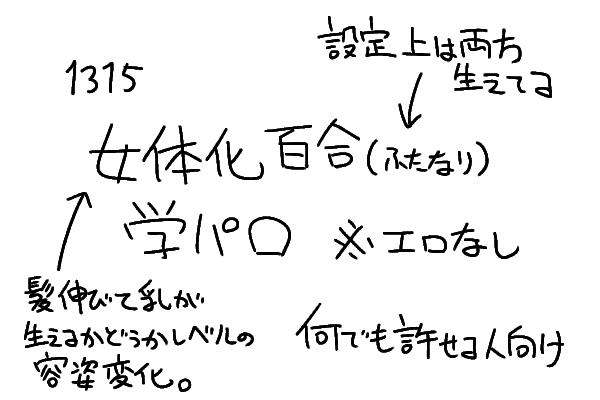 設定上は両方
生えてる
1315
女体化百合(ふたなり)
学パロ ※エロなし
髪伸びて乳が
生えるかどうかレベルの
容姿変化。
何でも許せる人向け